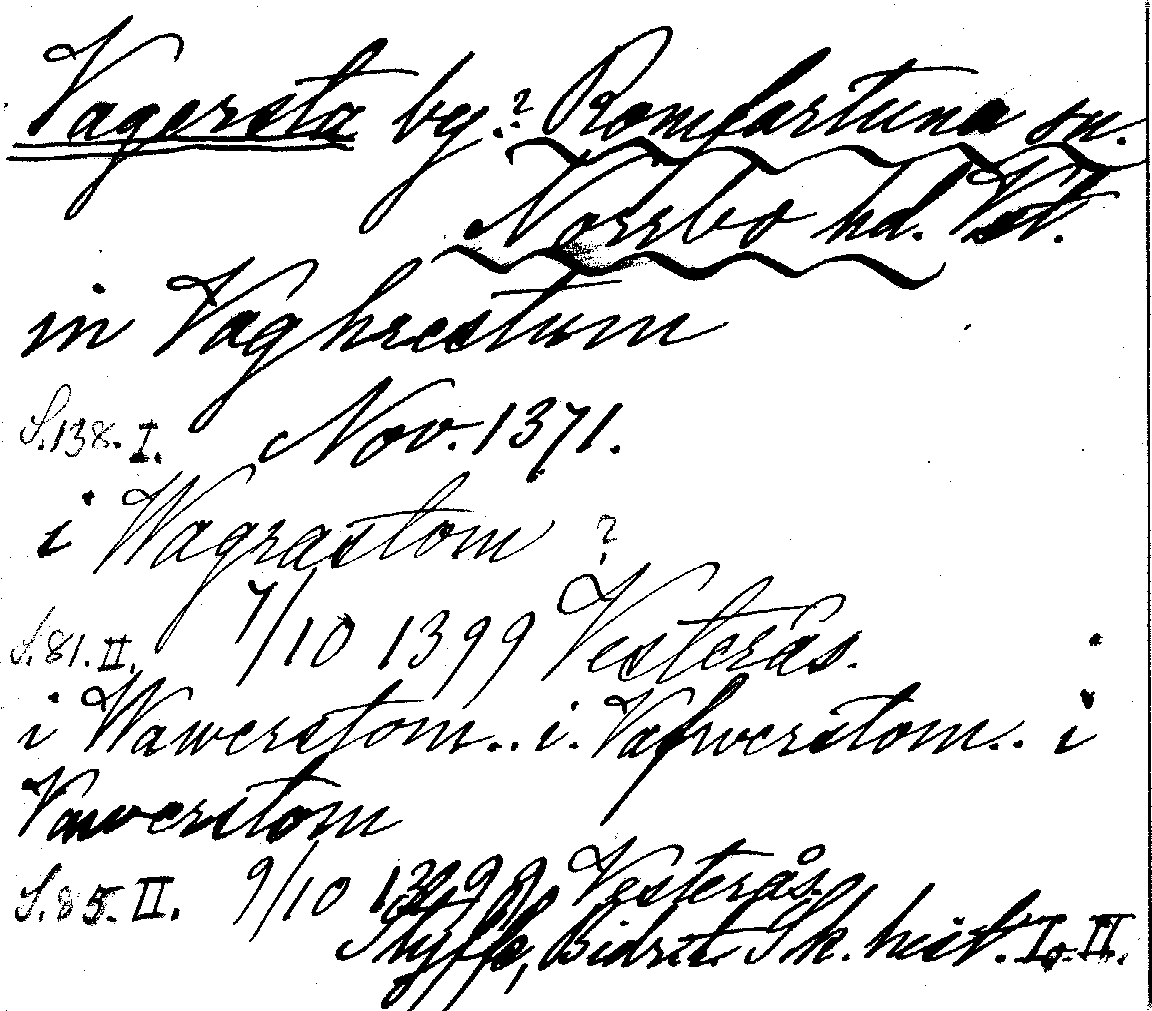 Vagersta by.? Romfartuna sn.
Norrbo hd. Vstm.
in Vaghrestum
S.138.I. Nov. 1371.
i Wagrastom ?
S.81.II. 7/10 1399 Vesterås.
i Wawerstom.. i. Vafwerstom.. i
Vawerstom
S.85.II. 9/10 1399 Vesterås.
Styffe, Bidr. t. Sk. hist. I, II.